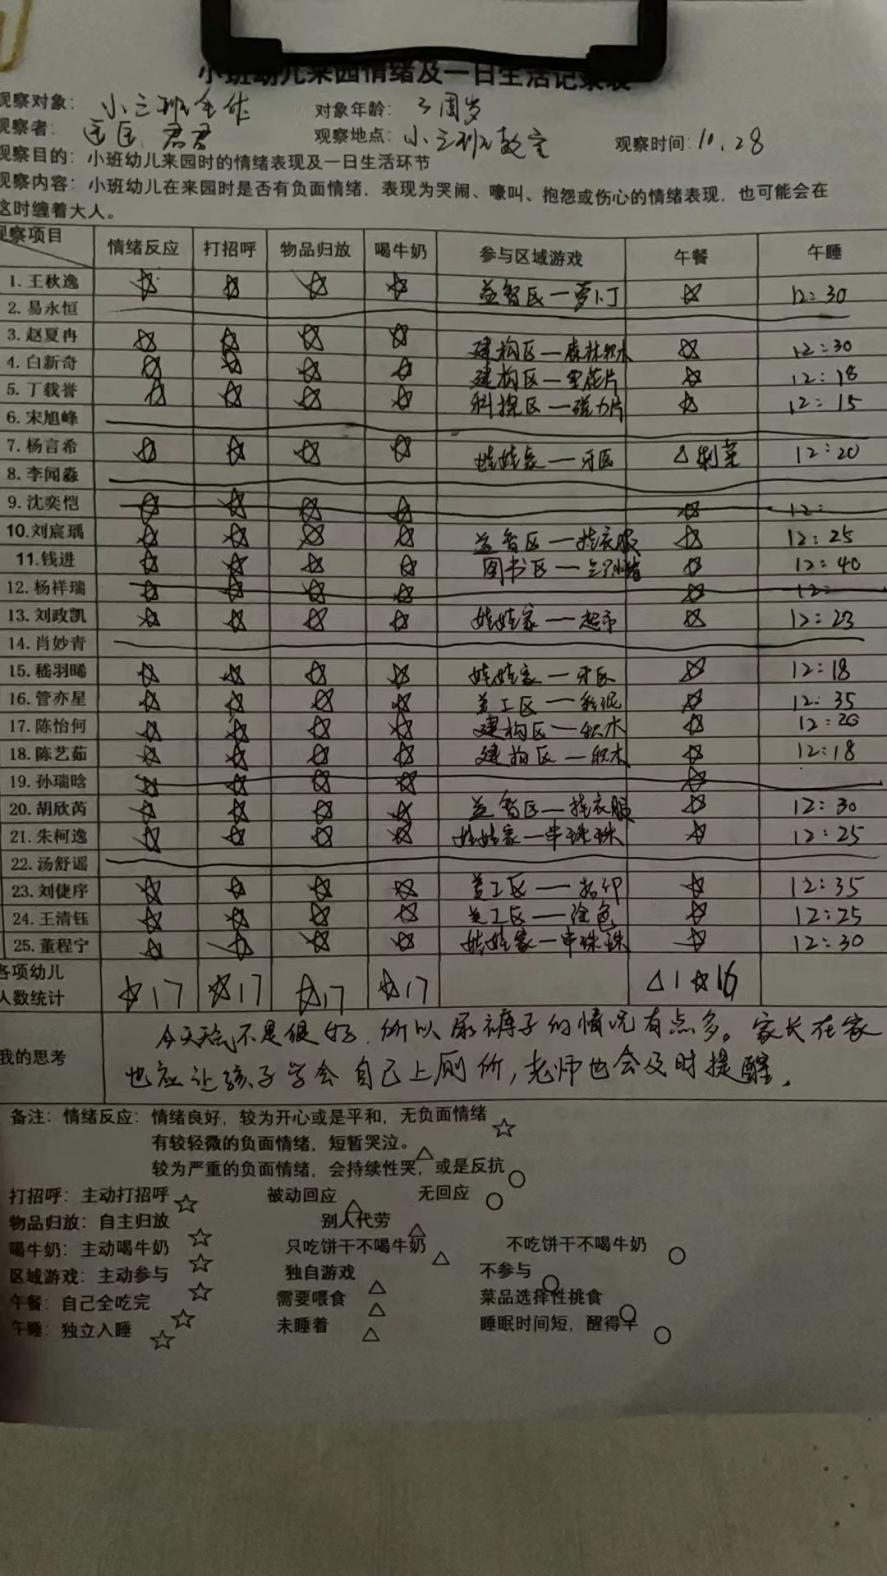 小班幼儿来园情绪及一日生活记录表
观察对象: 小三班全体 对象年龄: 3周岁
观察者: 君君 观察地点: 小三班教室 观察时间: 11.28
观察目的: 小班幼儿来园时的情绪表现及一日生活环节
观察内容: 小班幼儿在来园时是否有负面情绪,表现为哭闹、嚎叫、抱怨或伤心的情绪表现,也可能会在
这时缠着大人。
观察项目 情绪反应 打招呼 物品归放 喝牛奶 参与区域游戏 午餐 午睡
1. 王秋逸 ☆ ☆ ☆ ☆ 益智区—萝卜丁 ☆ 12:30
2. 易永恒
3. 赵夏冉 ☆ ☆ ☆ ☆ 建构区—森林积木 ☆ 12:30
4. 白新奇 ☆ ☆ ☆ ☆ 建构区—雪花片 ☆ 12:18
5. 丁载誉 ☆ ☆ ☆ ☆ 科探区—磁力片 ☆ 12:15
6. 宋旭峰
7. 杨言希 ☆ ☆ ☆ ☆ 娃娃家—牙医 △剩菜 12:20
8. 李闻淼
9. 沈奕恺 ☆ ☆ ☆ ☆ ☆ 12:
10. 刘宸瑀 ☆ ☆ ☆ ☆ 益智区—找衣服 ☆ 12:25
11. 钱进 ☆ ☆ ☆ ☆ 图书区—三只小猪 ☆ 12:40
12. 杨祥瑞 ☆ ☆ ☆ ☆ ☆ 12:
13. 刘政凯 ☆ ☆ ☆ ☆ 娃娃家—超市 ☆ 12:23
14. 肖妙青
15. 嵇羽晞 ☆ ☆ ☆ ☆ 娃娃家—牙医 ☆ 12:18
16. 管亦星 ☆ ☆ ☆ ☆ 美工区—彩泥 ☆ 12:35
17. 陈怡何 ☆ ☆ ☆ ☆ 建构区—积木 ☆ 12:20
18. 陈艺茹 ☆ ☆ ☆ ☆ 建构区—积木 ☆ 12:18
19. 孙瑞晗 ☆ ☆ ☆ ☆ ☆
20. 胡欣芮 ☆ ☆ ☆ ☆ 益智区—找衣服 ☆ 12:30
21. 朱柯逸 ☆ ☆ ☆ ☆ 娃娃家—串珠珠 ☆ 12:25
22. 汤舒谣
23. 刘倢序 ☆ ☆ ☆ ☆ 美工区—拓印 ☆ 12:35
24. 王清钰 ☆ ☆ ☆ ☆ 美工区—涂色 ☆ 12:25
25. 董程宁 ☆ ☆ ☆ ☆ 娃娃家—串珠珠 ☆ 12:30
各项幼儿
人数统计 ☆17 ☆17 ☆17 ☆17 △1 ☆16
今天天气不是很好,所以尿裤子的情况有点多。家长在家
我的思考
也应让孩子学会自己上厕所,老师也会及时提醒。
备注: 情绪反应: 情绪良好,较为开心或是平和,无负面情绪 ☆
有较轻微的负面情绪,短暂哭泣。 △
较为严重的负面情绪,会持续性哭,或是反抗 ○
打招呼: 主动打招呼 ☆ 被动回应 △ 无回应 ○
物品归放: 自主归放 ☆ 别人代劳 △
喝牛奶: 主动喝牛奶 ☆ 只吃饼干不喝牛奶 △ 不吃饼干不喝牛奶 ○
区域游戏: 主动参与 ☆ 独自游戏 △ 不参与 ○
午餐: 自己全吃完 ☆ 需要喂食 △ 菜品选择性挑食 ○
午睡: 独立入睡 ☆ 未睡着 △ 睡眠时间短,醒得早 ○